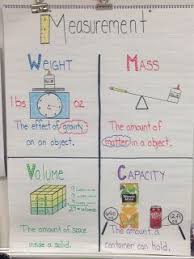 Measurement
Weight
lbs oz
The effect of gravity
on an object.
Mass
The amount of
matter in a object.
Volume
The amount of space
inside a solid.
Capacity
The amount a
container can hold.